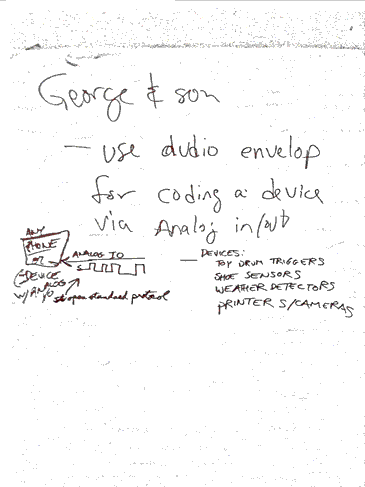 George & son
— use audio envelop
for coding a device
via Analog in/out
ANY
PHONE
ANALOG IO
DEVICE
W/ANALOG
I/O
open standard protocol
— DEVICES:
TOY DRUM TRIGGERS
SHOE SENSORS
WEATHER DETECTORS
PRINTERS/CAMERAS